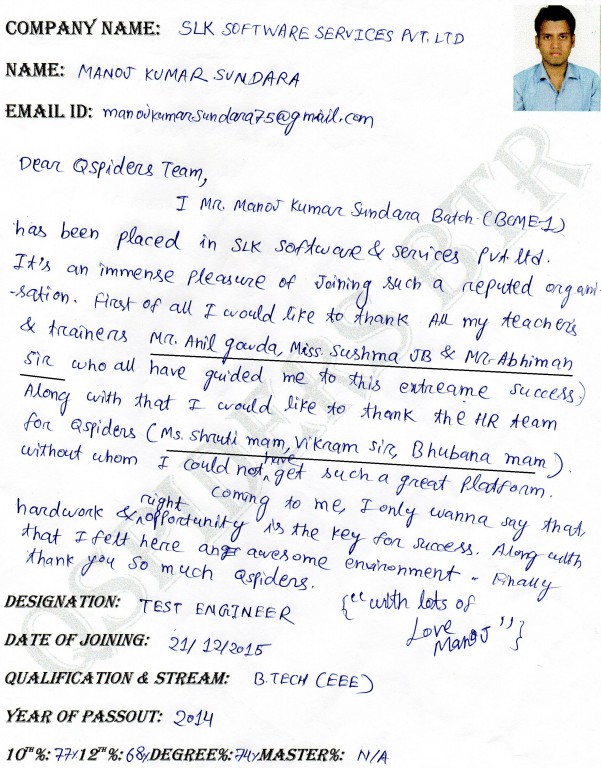 COMPANY NAME: SLK SOFTWARE SERVICES PVT. LTD
NAME: MANOJ KUMAR SUNDARA
EMAIL ID: manojkumarsundara75@gmail.com
Dear Qspiders Team,
I Mr. Manoj Kumar Sundara Batch-(BCME-1)
has been placed in SLK Software & Services Pvt. ltd.
It's an immense pleasure of Joining such a reputed organi-
-sation. First of all I would like to thank All my teachers
& trainers Mr. Anil gowda, Miss. Sushma JB & Mr. Abhiman
Sir who all have guided me to this extreame success.)
Along with that I would like to thank the HR team
for Qspiders (Ms. Shruti mam, Vikram sir, Bhubana mam).
without whom I could not have get such a great Platform.
Coming to me, I only wanna say that,
hardwork & right opportunity is the key for success. Along with
that I felt here an awesome environment - Finally
thank you so much Qspiders.
{"with lots of
Love
Manoj"}
DESIGNATION: TEST ENGINEER
DATE OF JOINING: 21/12/2015
QUALIFICATION & STREAM: B.TECH (EEE)
YEAR OF PASSOUT: 2014
10TH%: 77% 12TH%: 68% DEGREE%: 74% MASTER%: N/A
QSPIDERS BTR